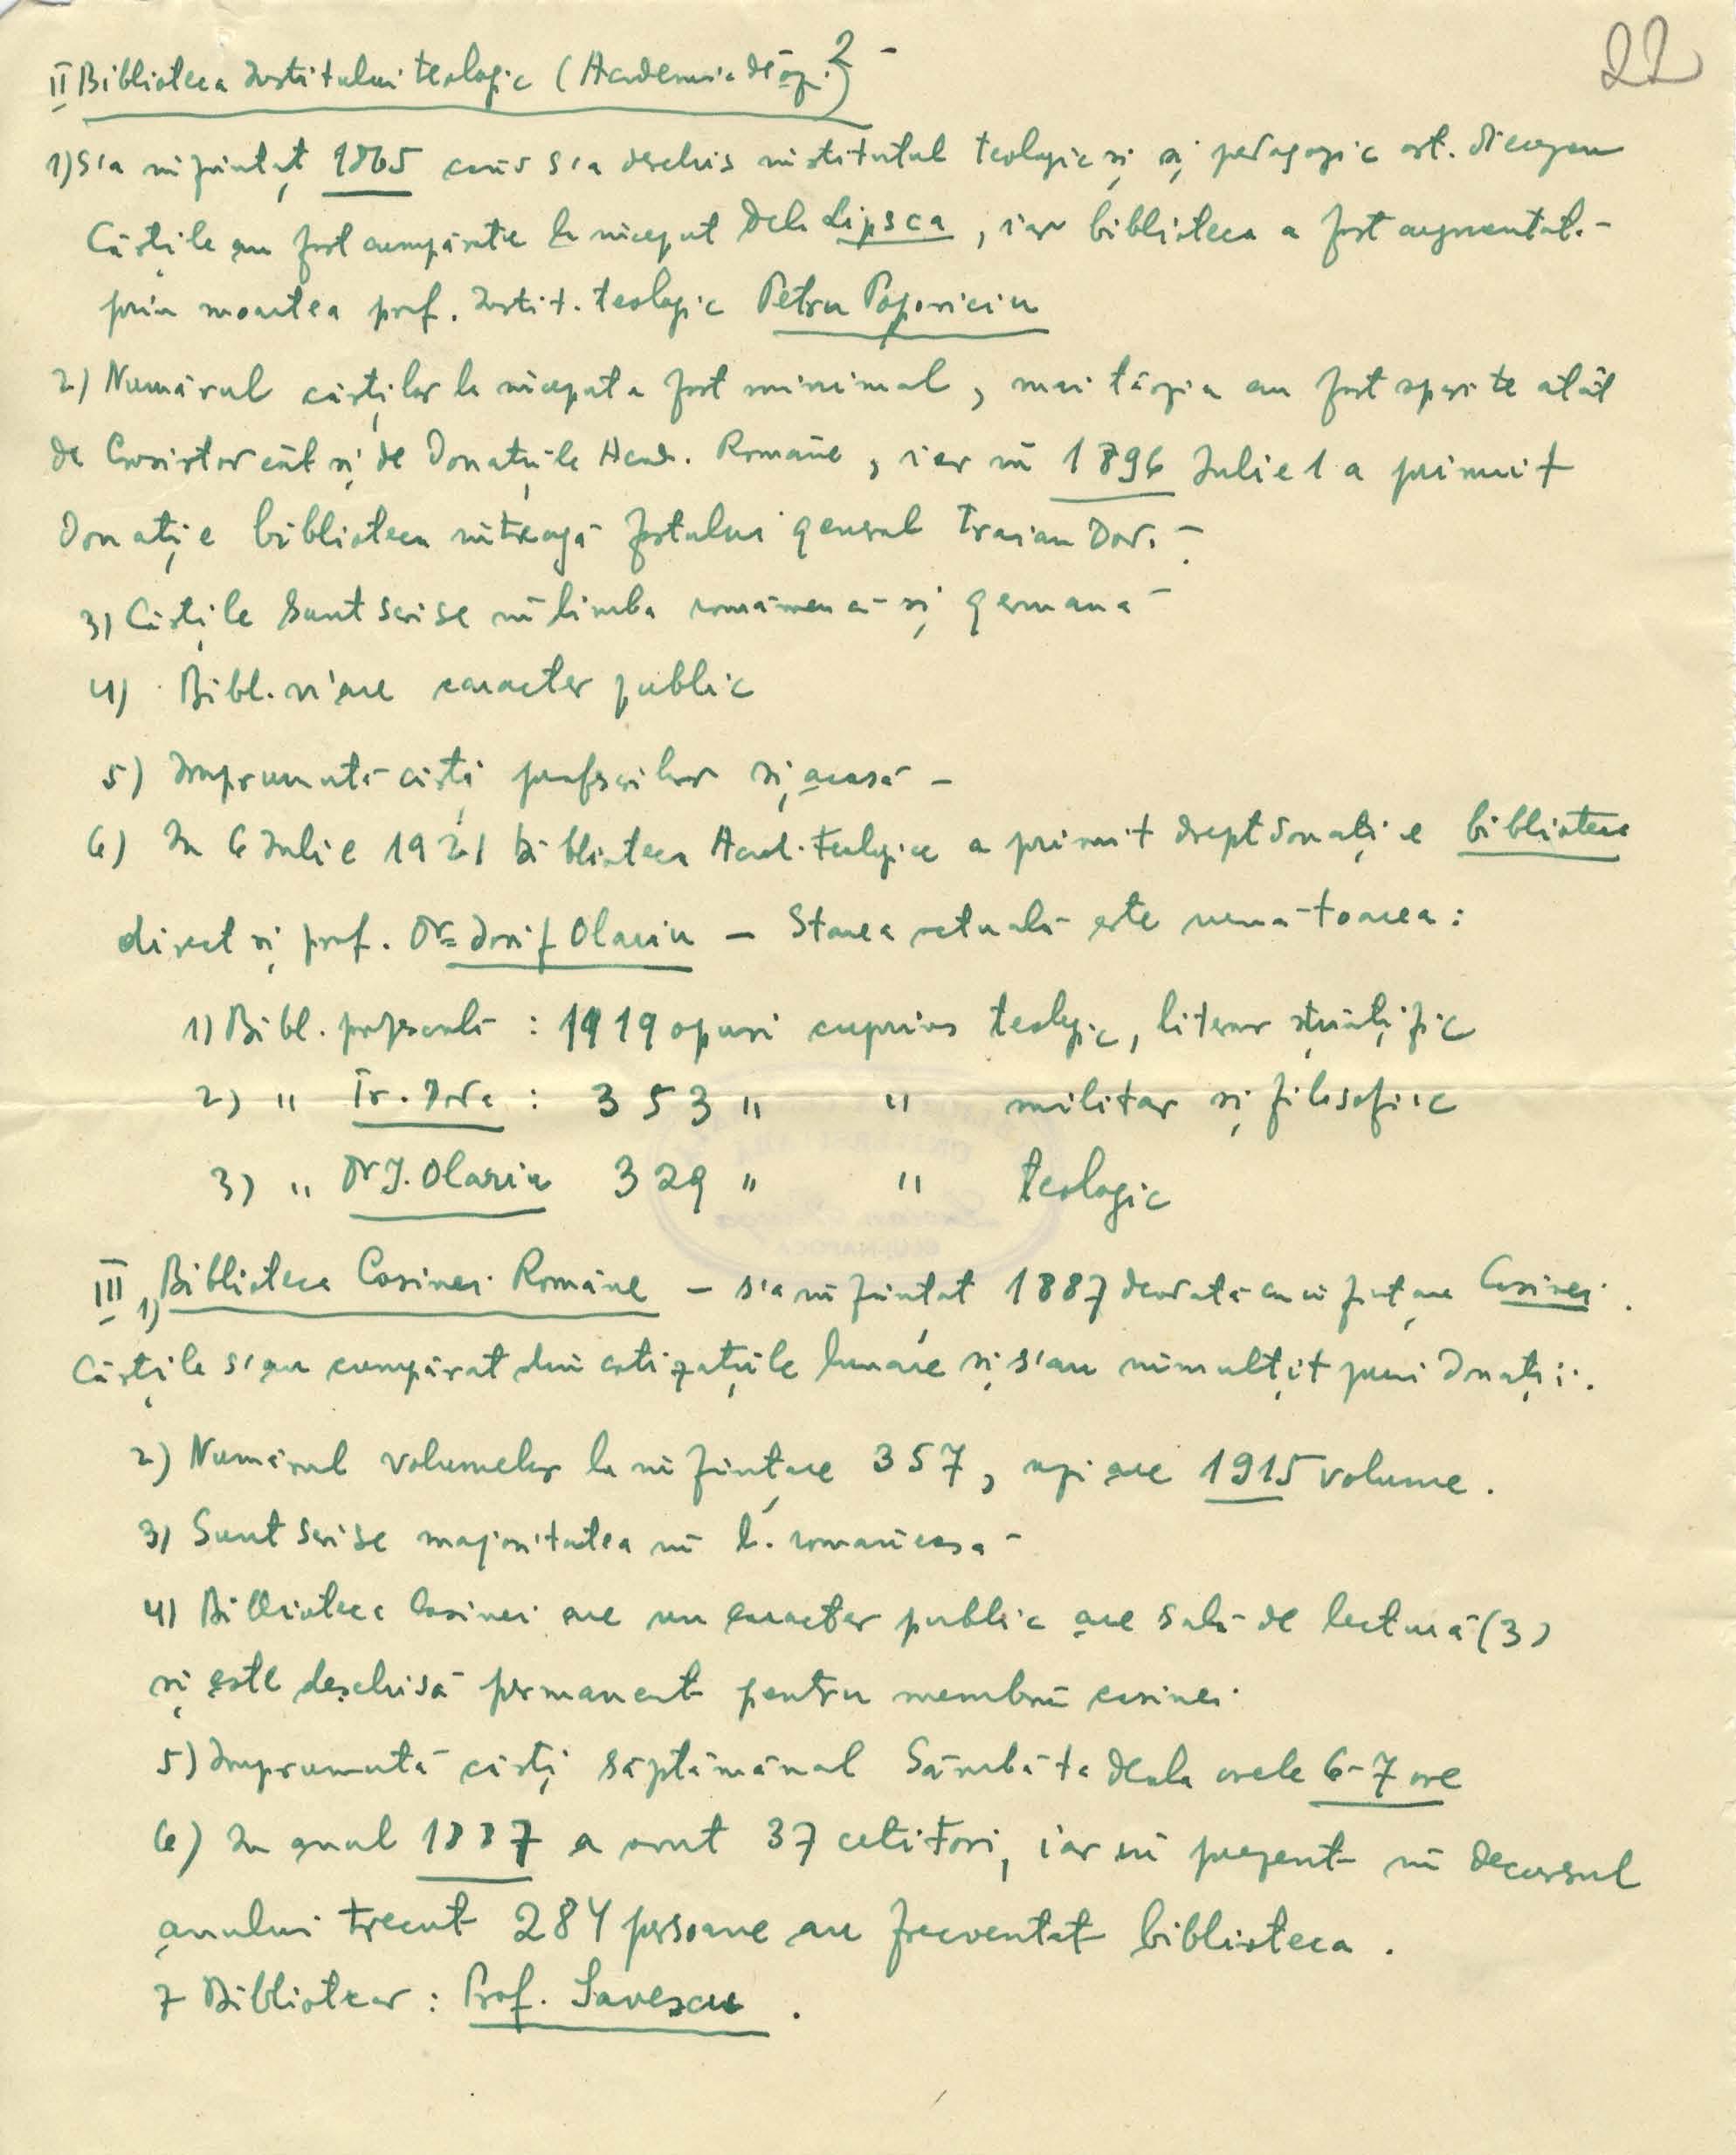 22
II Biblioteca Institului teologic (Academia de
1) S'a înființat 1865 când s'a deschis institutul teologic și și pedagogic ort. diecezan
Cărțile au fost cumpărate la început dela Lipsca, iar biblioteca a fost augmentat.-
prin moartea prof. Instit. teologic Petru Popoviciu
2) Numărul cărților la început a fost minimal, mai târziu au fost sporite atât
de Consistor cât și de Donațiile Acad. Române, iar în 1896 Iulie 1 a primit
Donație biblioteca întreagă fostului general Traian Doda
3) Cărțile Sunt scrise în limba română și germană
4) Bibl. n'are caracter public
5) Imprumută cărți profesorilor și acasă -
6) In 6 Iulie 1921 biblioteca Acad. Teologice a primit drept donație biblioteca
direct și prof. Dr Iosif Olariu - Starea actuală este următoarea:
1) Bibl. profesorală : 1919 opuri cuprins teologic, literar științific
2) " Tr. Doda : 353 " " militar și filosofic
3) " Dr I. Olariu 329 " " teologic
III 1) Biblioteca Casinei Române - s'a înființat 1887 deodată cu înființare Casinei.
Cărțile s'au cumpărat din cotizațiile lunare și s'au înmulțit prin Donații.
2) Numărul volumelor la înființare 357, azi are 1915 volume.
3) Sunt scrise majoritatea în l. românească
4) Biblioteca Casinei are un caracter public are sală de lectură (3)
și este deschisă permanent pentru membrii casinei
5) Imprumută cărți săptămânal Sâmbăta dela orele 6-7 ore
6) In anul 1887 a avut 37 cetitori, iar în prezent în decursul
anului trecut 284 persoane au frecventat biblioteca.
7 Bibliotecar : Prof. Savescu.